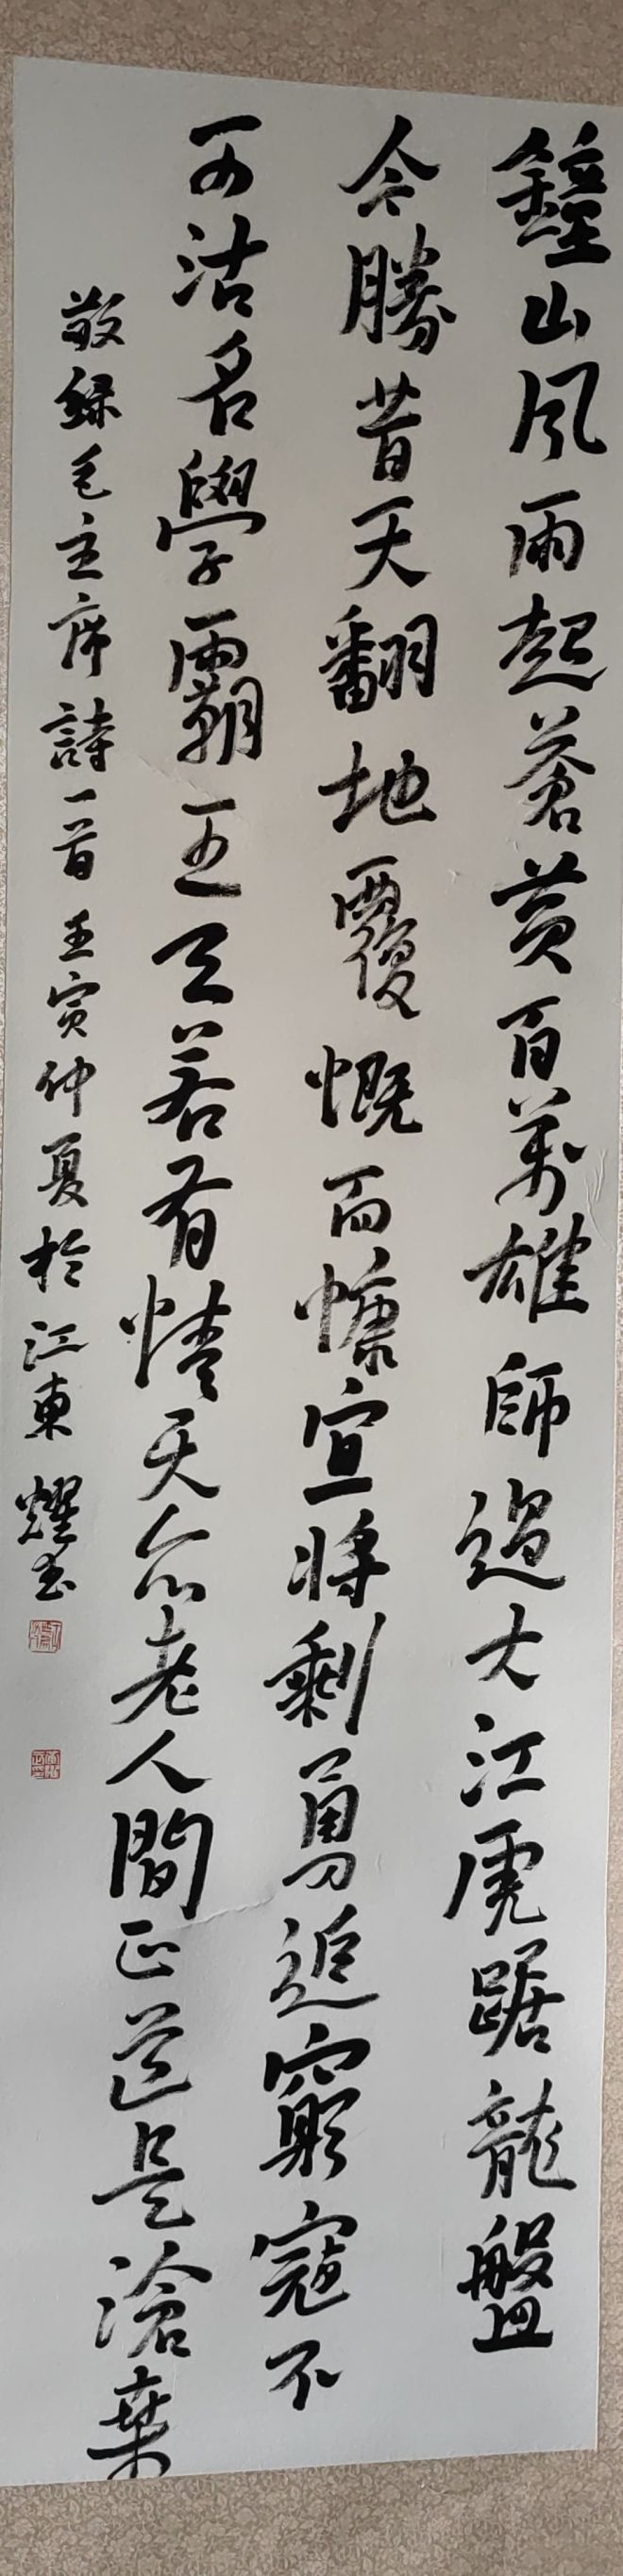 鐘山風雨起蒼黃百萬雄師過大江虎踞龍盤
今勝昔天翻地覆慨而慷宜將剩勇追窮寇不
可沽名學霸王天若有情天亦老人間正道是滄桑
敬錄毛主席詩一首壬寅仲夏於江東耀書